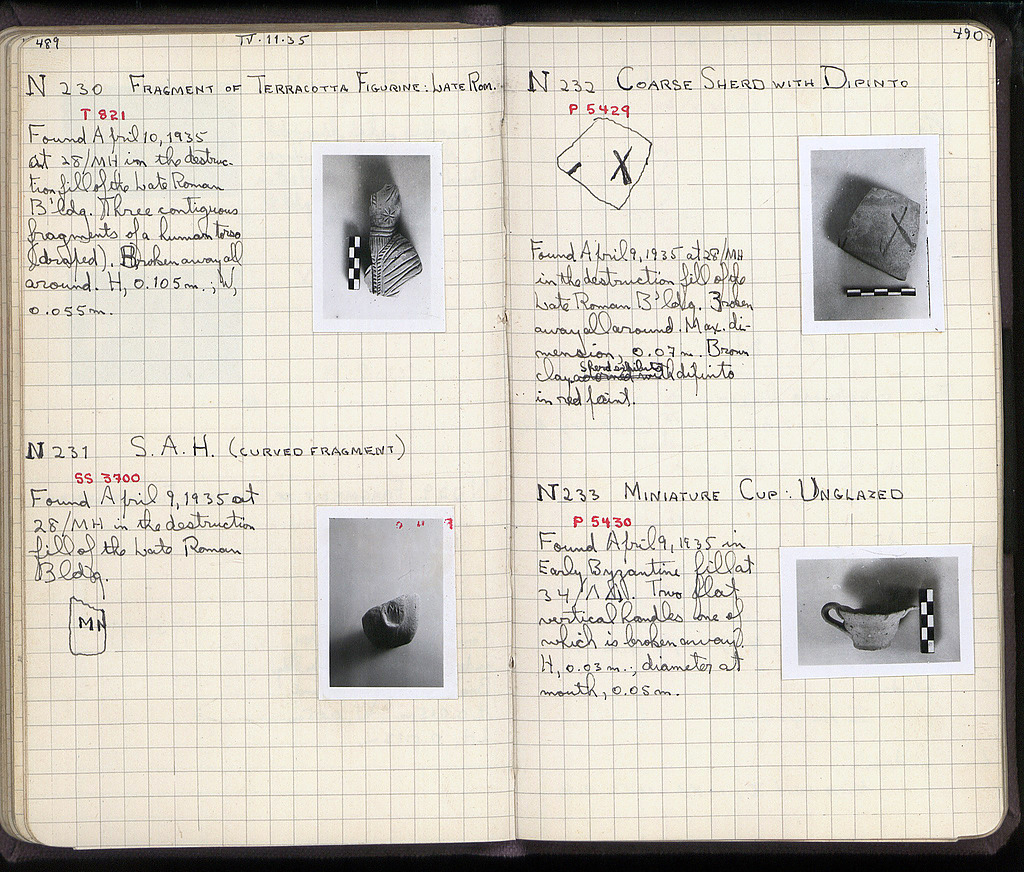 489
IV·11·35
N 230 FRAGMENT OF TERRACOTTA FIGURINE: LATE ROM.
T 821
Found April 10, 1935
at 28/MH in the destruc-
tion fill of the Late Roman
B'ldg. Three contiguous
fragments of a human torso
(draped). Broken away all
around. H, 0.105 m.; W,
0.055 m.
N 231 S.A.H. (CURVED FRAGMENT)
SS 3700
Found April 9, 1935 at
28/MH in the destruction
fill of the Late Roman
Bldg.
MN
490
N 232 COARSE SHERD WITH DIPINTO
P 5429
X
Found April 9, 1935 at 28/MH
in the destruction fill of the
Late Roman B'ldg. Broken
away all around. Max. di-
mension, 0.07 m. Brown
sherd exhibits
clay adorned with dipinto
in red paint.
N 233 MINIATURE CUP: UNGLAZED
P 5430
Found April 9, 1935 in
Early Byzantine fill at
34/ΛΔ. Two flat
vertical handles one of
which is broken away.
H, 0.03 m.; diameter at
mouth, 0.05 m.